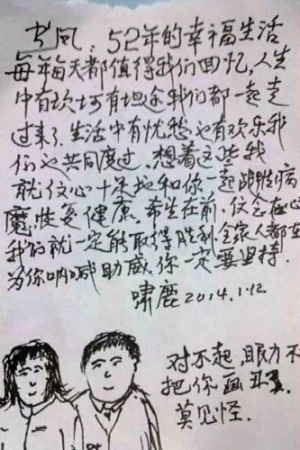 风：52年的幸福生活
每年每天都值得我们回忆,人生
中有坎坷有坦途我们都一起走
过来了.生活中有忧愁也有欢乐我
们也共同度过.想着这些我
就信心十足地和你一起战胜病
魔恢复健康.希望在前.信念在心
我们就一定能取得胜利全家人都在
为你呐喊助威.你一定要坚持.
啸鹿 2014.1.12.
对不起,眼力不
把你画丑了.
莫见怪.